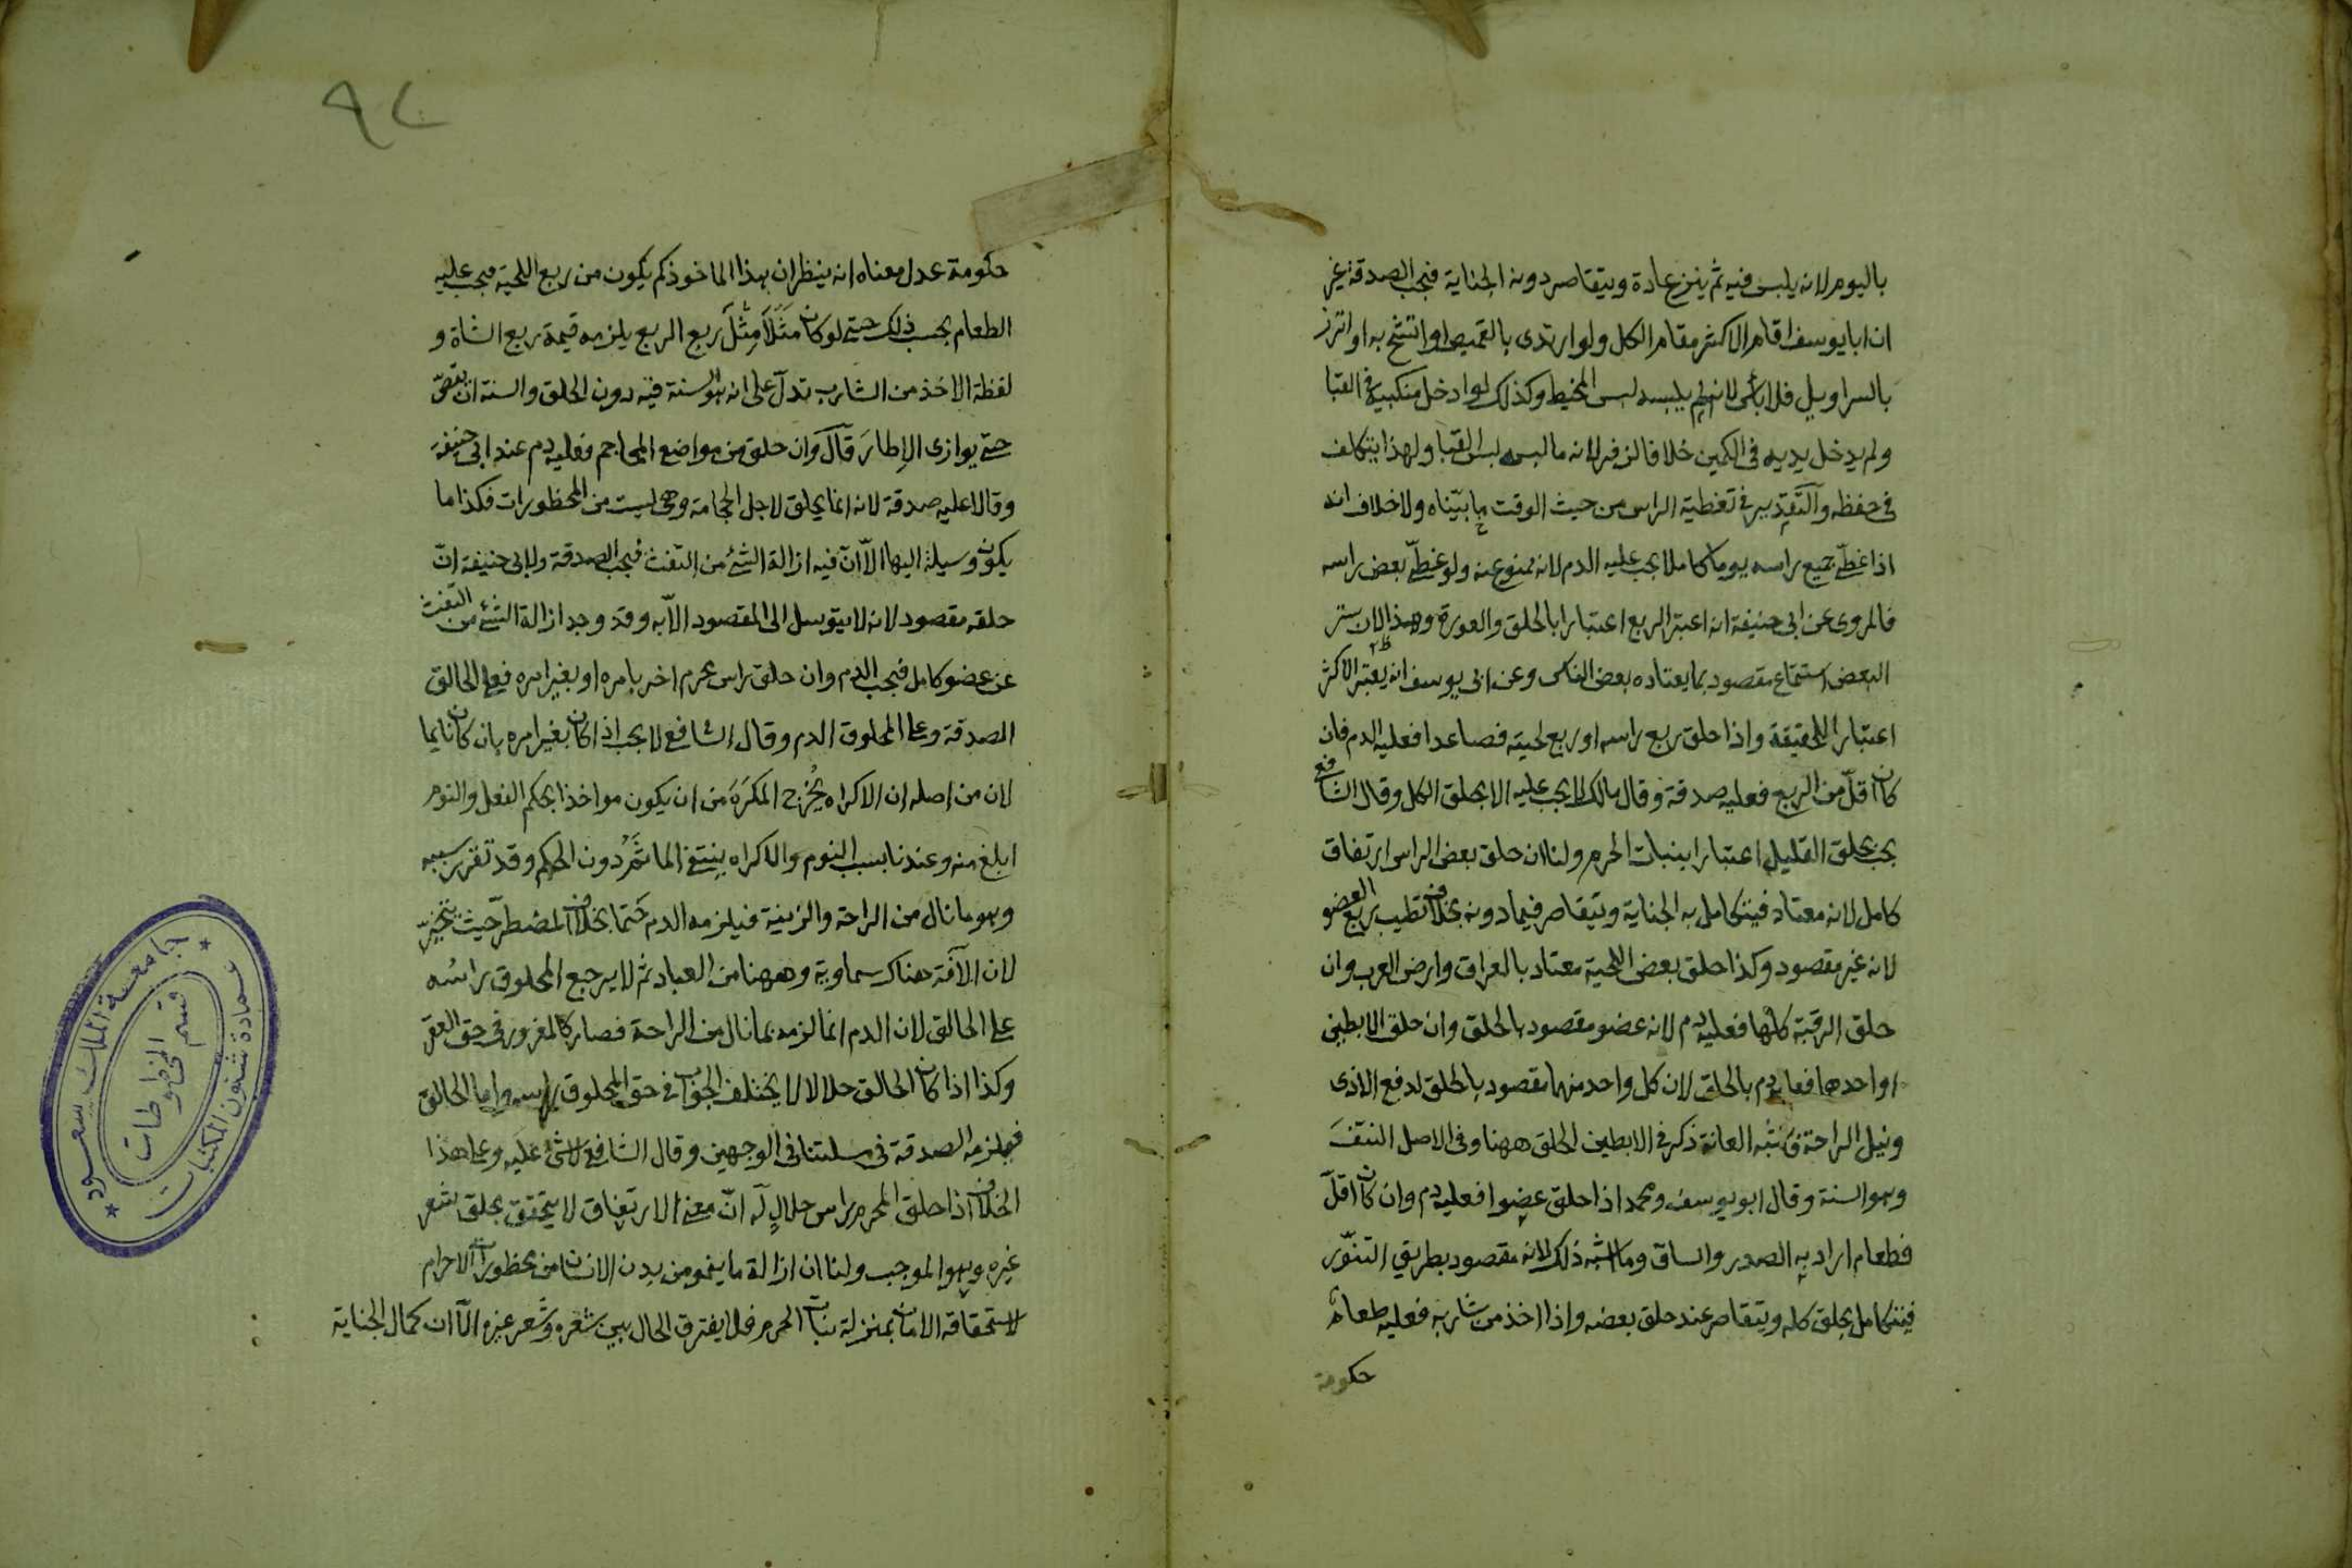 باليوم لانه يلبس فيه ثم ينزع عادة ويتقاصر دونه الجناية فيجب الصدقة غير
ان ابا يوسف اقام الاكثر مقام الكل ولو ارتدى بالقميص او اتشح به او اتزر
بالسراويل فلا بأس لانه لم يلبسه لبس المخيط وكذلك لو ادخل منكبيه في القبا
ولم يدخل يديه في الكمين خلافا لزفر لانه ما لبسه لبس القبا ولهذا يتكلف
في حفظه والتقدير في تغطية الراس من حيث الوقت ما بيّناه ولا خلاف انه
اذا غطّى جميع راسه يوما كاملا يجب عليه الدم لانه ممنوع عنه ولو غطّى بعض راسه
فالمروى عن ابى حنيفة انه اعتبر الربع اعتبارا بالحلق والعورة وهذا لان ستر
البعض استمتاع مقصود بما يعتاده بعض الناس وعن ابى يوسف انه يعتبر الاكثر
اعتبارا للحقيقة واذا حلق ربع راسه او ربع لحيته فصاعدا فعليه الدم فان
كان اقلّ من الربع فعليه صدقة وقال مالك لا يجب عليه الا بحلق الكل وقال الشافع
يجب بحلق القليل اعتبارا بنبات الحرم ولنا ان حلق بعض الراس ارتفاق
كامل لانه معتاد فيتكامل به الجناية ويتقاصر فيما دونه بخلاف تطيب ربع العضو
لانه غير مقصود وكذا حلق بعض اللحية معتاد بالعراق وارض العرب وان
حلق الرقبة كلّها فعليه دم لانه عضو مقصود بالحلق وان حلق الابطين
او احدهما فعليه دم بالحلق لان كل واحد منهما مقصود بالحلق لدفع الاذى
ونيل الراحة فاشبه العانة ذكر في الابطين الحلق ههنا وفى الاصل النتفَ
وهو السنة وقال ابو يوسف ومحمد اذا حلق عضوا فعليه دم وان كان اقلّ
فطعام اراد به الصدر والساق وما اشبه ذلك لانه مقصود بطريق التنوّر
فيتكامل بحلق كله ويتقاصر عند حلق بعضه واذا اخذ من شاربه فعليه طعام
حكومة
٩٢
حكومة عدل معناه انه ينظر ان هذا الماخوذ كم يكون من ربع اللحية فيجب عليه
الطعام بحسب ذلك حتى لو كان مَثَلاً مِثْلَ ربع الربع يلزمه قيمة ربع الشاة و
لفظة الاخذ من الشارب تدلّ على انه هو السنة فيه دون الحلق والسنة ان يقصّ
حتى يوازى الاِطارَ قال وان حلق من مواضع المحاجم فعليه دم عند ابى حنيفة
وقالا عليه صدقة لانه انما يحلق لاجل الحجامة وهى ليست من المحظورات فكذا ما
يكون وسيلة اليها الاّ انّ فيه ازالة الشئ من التفث فيجب الصدقة ولابى حنيفة انّ
حلقه مقصود لانه لا يتوسل الى المقصود الاّ به وقد وجد ازالة الشئ من التفث
عن عضو كامل فيجب الدم وان حلق راس محرم اخر بامره او بغير امره فعلى الحالق
الصدقة وعلى المحلوق الدم وقال الشافع لا يجب اذا كان بغير امره بان كان نايما
لان من اصله ان الاكراه يُخْرِج المكرَهَ من ان يكون مواخذا بحكم الفعل والنوم
ابلغ منه وعندنا بسبب النوم والاكراه ينتفى الماثَمُ دون الحكم وقد تقرر سببه
وهو ما نال من الراحة والزينة فيلزمه الدم حَتما بخلاف المضطرّ حيث يتخيّر
لان الآفة هناك سماوية وههنا من العباد ثم لا يرجع المحلوق راسُه
على الحالق لان الدم انما لزمه بما نال من الراحة فصار كالمغرور في حق العقر
وكذا اذا كان الحالق حلالا لا يختلف الجواب في حق المحلوق راسه واما الحالق
فيلزمه الصدقة في مسئلتنا في الوجهين وقال الشافع لا شئ عليه وعلى هذا
الخلاف اذا حلق المحرم راس حلالٍ له انّ معنى الارتفاق لا يتحقق بحلق شعر
غيره وهو الموجب ولنا ان ازالة ما ينمو من بدن الانسان من محظورات الاحرام
لاستحقاقه الامان بمنزلة نبات الحرم فلا يفترق الحال بين شعره وشَعر غيره الاّ ان كمال الجناية
جامعة الملك سعود
عمادة شئون المكتبات
قسم المخطوطات